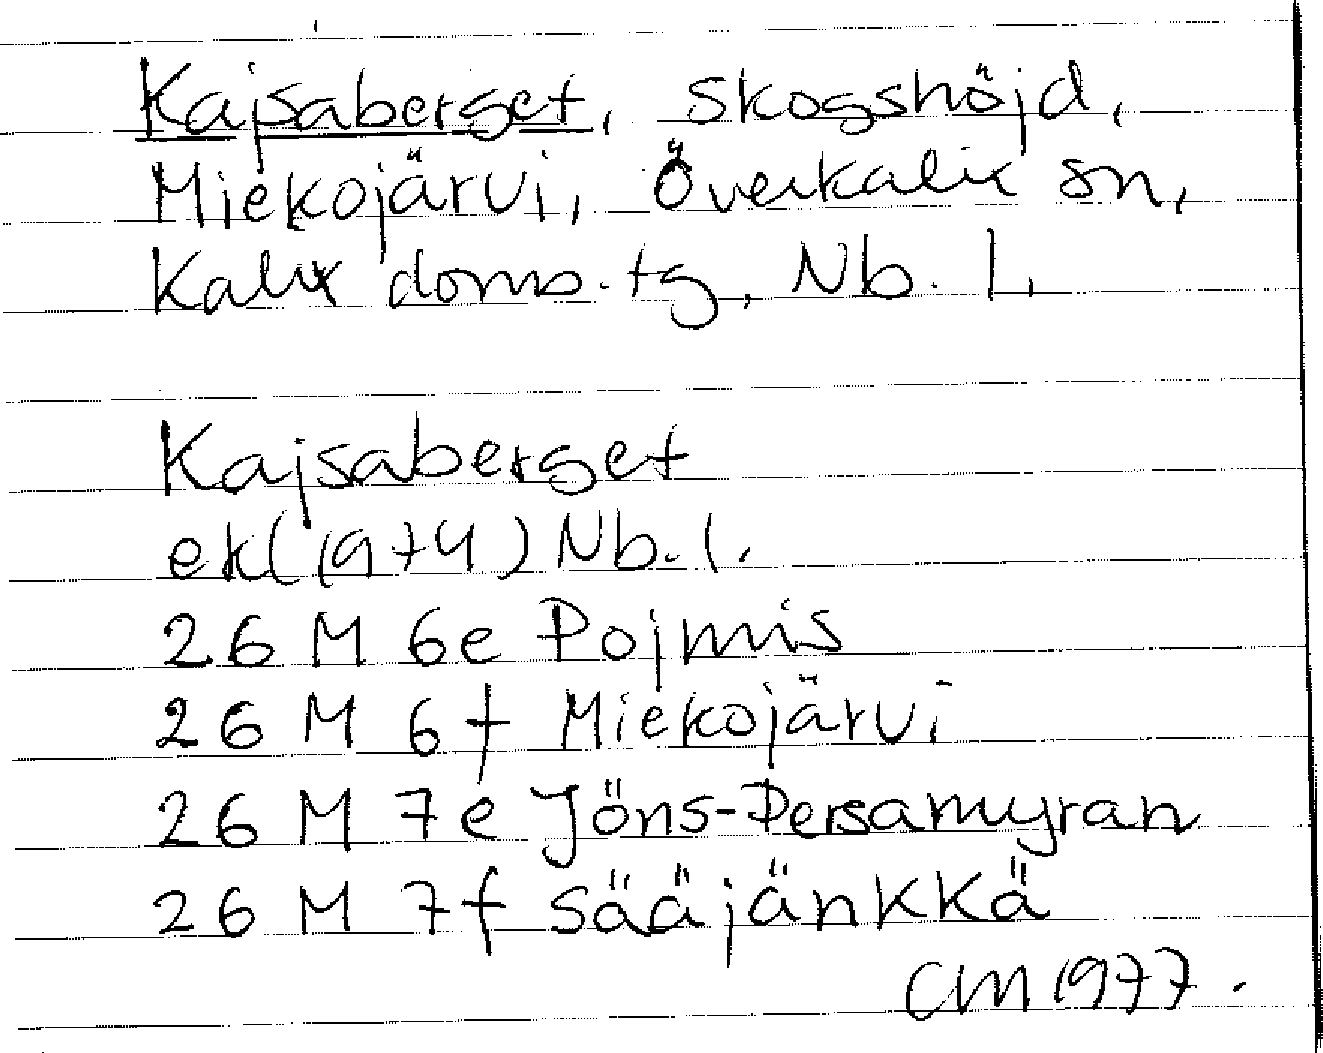 Kajsaberget, skogshöjd,
Miekojärvi, Överkalix sn,
Kalix doms.tg, Nb. l.
Kajsaberget
ekl (1974) Nb. l.
26 M 6e Pojmis
26 M 6f Miekojärvi
26 M 7e Jöns-Persamyran
26 M 7f Sääjänkkä
CM 1977.